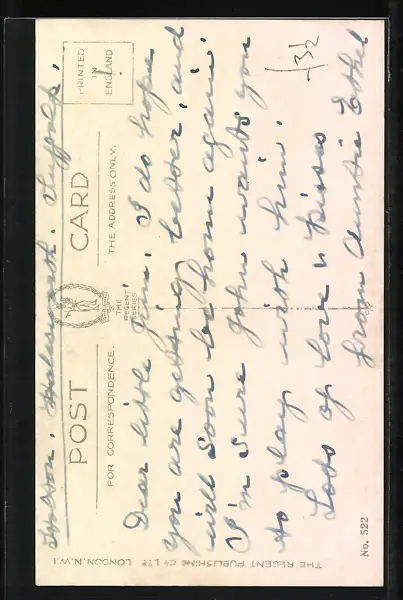 Holton. Halesworth. Suffolk.
POST CARD
PRINTED
IN
ENGLAND
FOR CORRESPONDENCE.
THE ADDRESS ONLY.
THE
REGENT
SERIES
Dear little Jim, I do hope
you are getting better, and
will soon be home again.
I'm sure John wants you
to play with him.
Lots of love & kisses
from Auntie Ethel
THE REGENT PUBLISHING CO LTD LONDON. N.W.1
No. 522